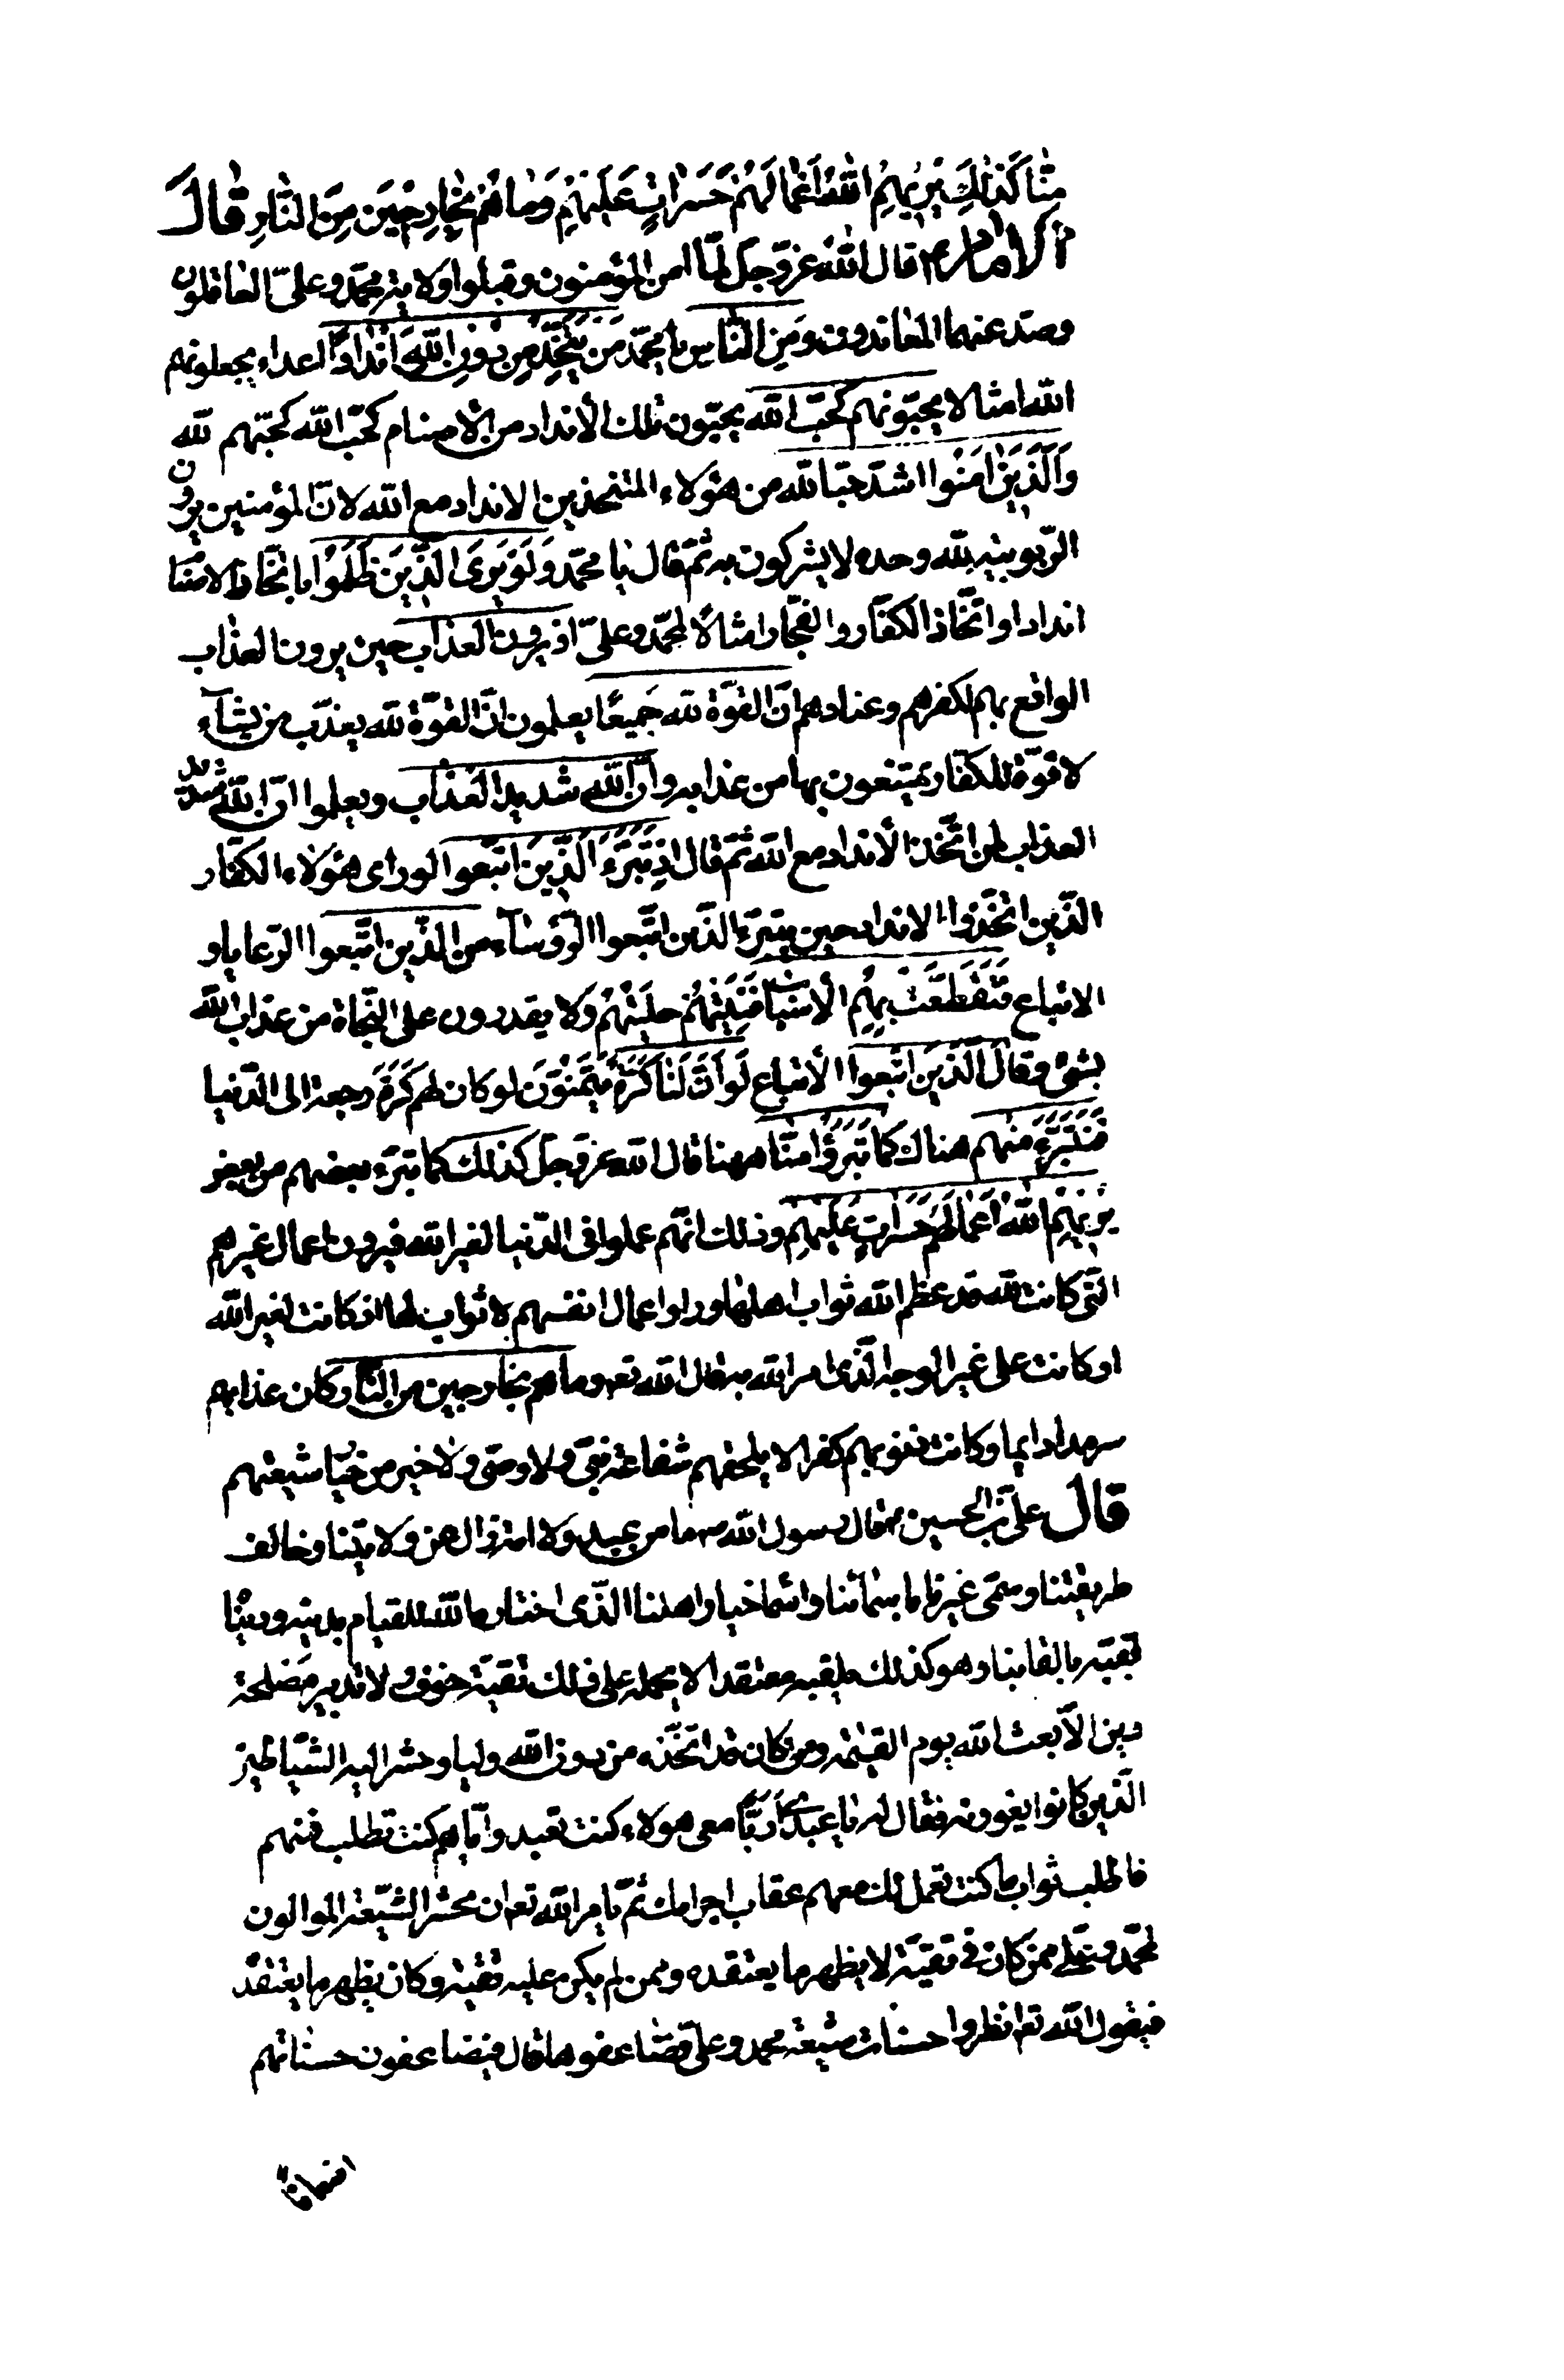 مِنَّا كَذٰلِكَ يُرِيهِمُ اللّٰهُ اَعْمَالَهُمْ حَسَرَاتٍ عَلَيْهِمْ وَمَا هُمْ بِخَارِجِينَ مِنَ النَّارِ قَالَ
الامام ع قال اللّٰه عزّ وجلّ لمّا امن المؤمنون وقبلوا ولاية محمّد وعلىّ العاقلون
وصدّ عنهما المعاندون وَمِنَ النَّاسِ يا محمّد مَنْ يَتَّخِذُ مِنْ دُونِ اللّٰهِ اَنْدَادًا اعداء يجعلونهم
اللّه امثالا يحبّونهم كحبّ اللّه يحبّون تلك الأنداد من الأصنام كحبّ اللّه كحبّهم للّه
وَالَّذِينَ اٰمَنُوا اشدّ حبّا للّه من هؤلاء المتّخذين الانداد مع اللّه لانّ المؤمنين يرون
الرّبوبيّة للّه وحده لا يشركون به ثمّ قال يا محمّد وَلَوْ يَرَى الَّذِينَ ظَلَمُوا باتّخاذ الاصنا
اندادا واتّخاذ الكفّار والفجّار امثالًا لمحمّد وعلىّ اذ يرون العذاب حين يرون العذاب
الواقع بهم لكفرهم وعنادهم انّ القوّة للّه جَمِيعًا يعلمون انّ القوّة للّه يعذّب من يشآء
لا قوّة للكفّار يمتنعون بها من عذابه وانّ اللّه شديد العَذاب ويعلموا انّ اللّه شديد
العذاب لمن اتّخذ الأنداد مع اللّه ثمّ قال اِذْ تَبَرَّءَ الَّذِينَ اتُّبعوا لو راى هؤلاء الكفّار
الّذين اتّخذوا الانداد حين يتبرّء الّذين اتّبعوا الرّؤسآء من الّذين اتّبعوا الرّعايا و
الاتباع فَتَقَطَّعَتْ بِهِمُ الأَسْبَاب فَنِيَتْهُمْ حيلَتُهُمْ وَلا يقدرون على النّجاة من عذاب اللّه
بشئ وَقالَ الَّذينَ اتَّبَعوا الأتباع لَوْ اَنَّ لَنَا كَرَّةً يَتَمَنَّوْنَ لو كان لهم كَرَّةً رجعة الى الدّنيا
فَنَتَبَرَّءَ منهم هناك كما تَبَرَّؤُا مِنّا ههنا قال اللّه عزّ وجلّ كذلك كما تبرّء بعضهم من بعض
يُرِيهِمُ اللّٰهُ اَعْمَالَهُمْ حَسَرَاتٍ عَلَيْهِمْ وذلك انّهم عملوا فى الدّنيا لغير اللّه فيرون اعمال غيرهم
الّتى كانت للّه قد عظّم اللّه ثواب اهلها وراوا اعمال انفسهم لا ثواب لها اذ كانت لغير اللّه
او كانت على غير الوجه الّذى امر اللّه به قال اللّه تعـ وما هم بخارجين من النّار كان عذابهم
سرمدا دايما وكانت ذنوبهم كفرا لا يلحقهم شفاعة نبىّ ولا وصىّ ولا خير من خيار شيعتهم
قال علىّ بن الحسين ع قال رسول اللّه ص ما من عبد ولا امة زال عن ولايتنا وخالف
طريقتنا وسمّى غيرنا باسمائنا واسما خيار اهلنا الّذى اختاره اللّه للقيام بدينه ودنيا
يقبّه بالقابنا وهو كذلك يلقبه معتقدا لا يحمله على ذلك تقيّة خوف ولا تدبير مَصْلحة
دين الاّ بعثه اللّه يوم القيمة ومن كان قد اتّخذه من دون اللّه وليا وحشر اليه الشّياطين
الّذين كانوا يغوونه فقال له يا عبدى اَرَبًّا معى هولاء كنت تعبد وايّاهم كنت تطلب فمنهم
فاطلب ثواب ما كنت تعمل لك معهم عقاب اجرامك ثمّ يامر اللّه تعـ ان يحشر الشّيعة الموالون
لمحمّد وعلى ممّن كان فى تقيّة لا يظهر ما يعتقده وممن لم يكن عليه تقيّة وكان يظهر ما يعتقدّ
فيقول اللّه تعـ انظروا حسنات شيعة محمد وعلى فضاعفوها قال فيضاعفون حسناتهم